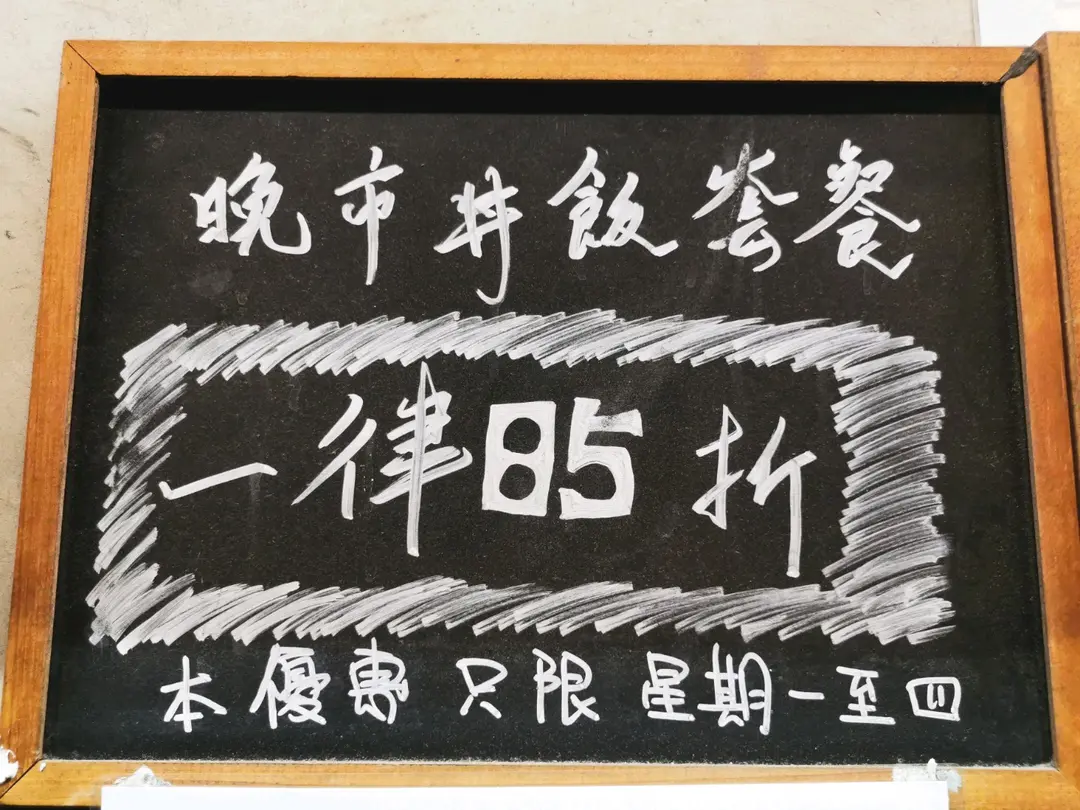 晚市丼飯套餐
一律85折
本優惠只限星期一至四